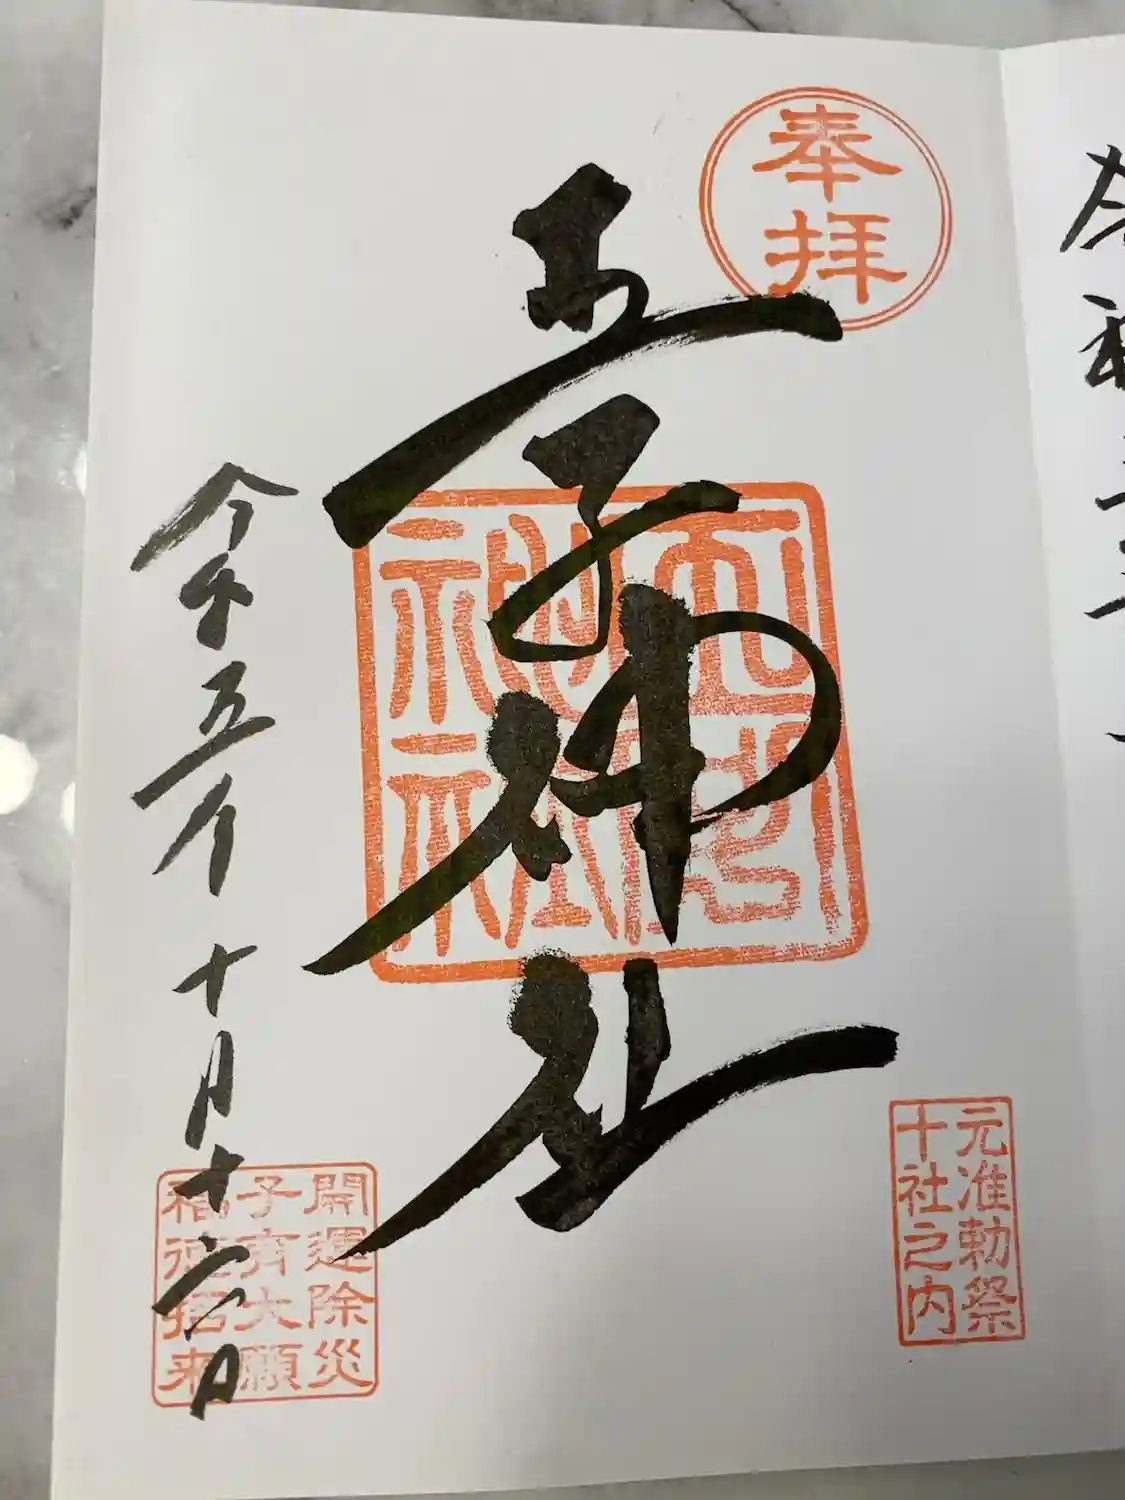 奉拝
元准勅祭
十社之内
王子神社
開運除災
子育大願
福徳招来
令和五年十月十六日